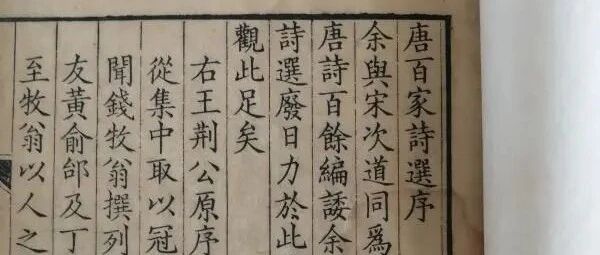 唐百家詩選序
余與宋次道同爲
唐詩百餘編諉余
詩選廢日力於此
觀此足矣
右王荆公原序
從集中取以冠
聞錢牧翁撰列
友黃俞邰及丁
至牧翁以人之